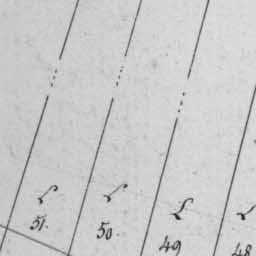 51.
50.
49
48